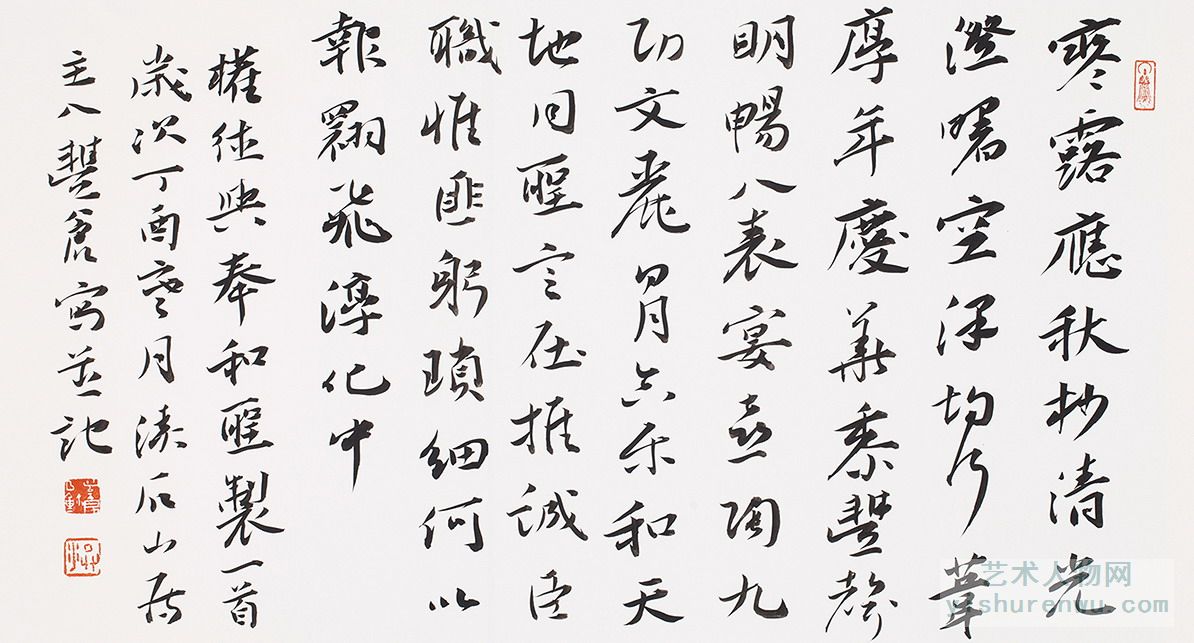 寒露應秋杪清光
澄曙空澤均行葦
厚年慶華黍豐聲
明暢八表宴喜陶九
功文麗日月合樂和天
地同聖言在推誠臣
職惟匪躬瑣細何以
報翾飛淳化中
權德輿奉和聖製一首
歲次丁酉寒月漱石山居
主人豐寫並記
艺术人物网
yishurenwu.com